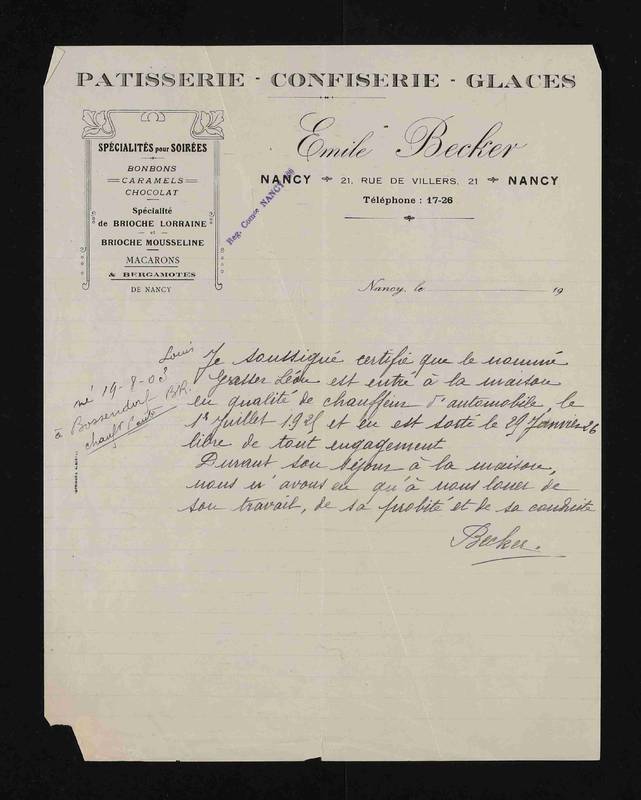 PATISSERIE - CONFISERIE - GLACES
SPÉCIALITÉS pour SOIRÉES
BONBONS
CARAMELS
CHOCOLAT
Spécialité
de BRIOCHE LORRAINE
et
BRIOCHE MOUSSELINE
MACARONS
& BERGAMOTES
DE NANCY
Emile Becker
NANCY 21, RUE DE VILLERS, 21 NANCY
Téléphone : 17-26
Reg. Comce NANCY
Nancy, le 19
Louis
né 19-8-03
à Bossendorf B.R.
chauff d'auto
Je soussigné certifie que le nommé
Grasser Léon est entré à la maison
en qualité de chauffeur d'automobile, le
1r Juillet 1925 et en est sorti le 29 Janvier 26
libre de tout engagement
Durant son séjour à la maison,
nous n'avons eu qu'à nous louer de
son travail, de sa probité et de sa conduite
Becker.